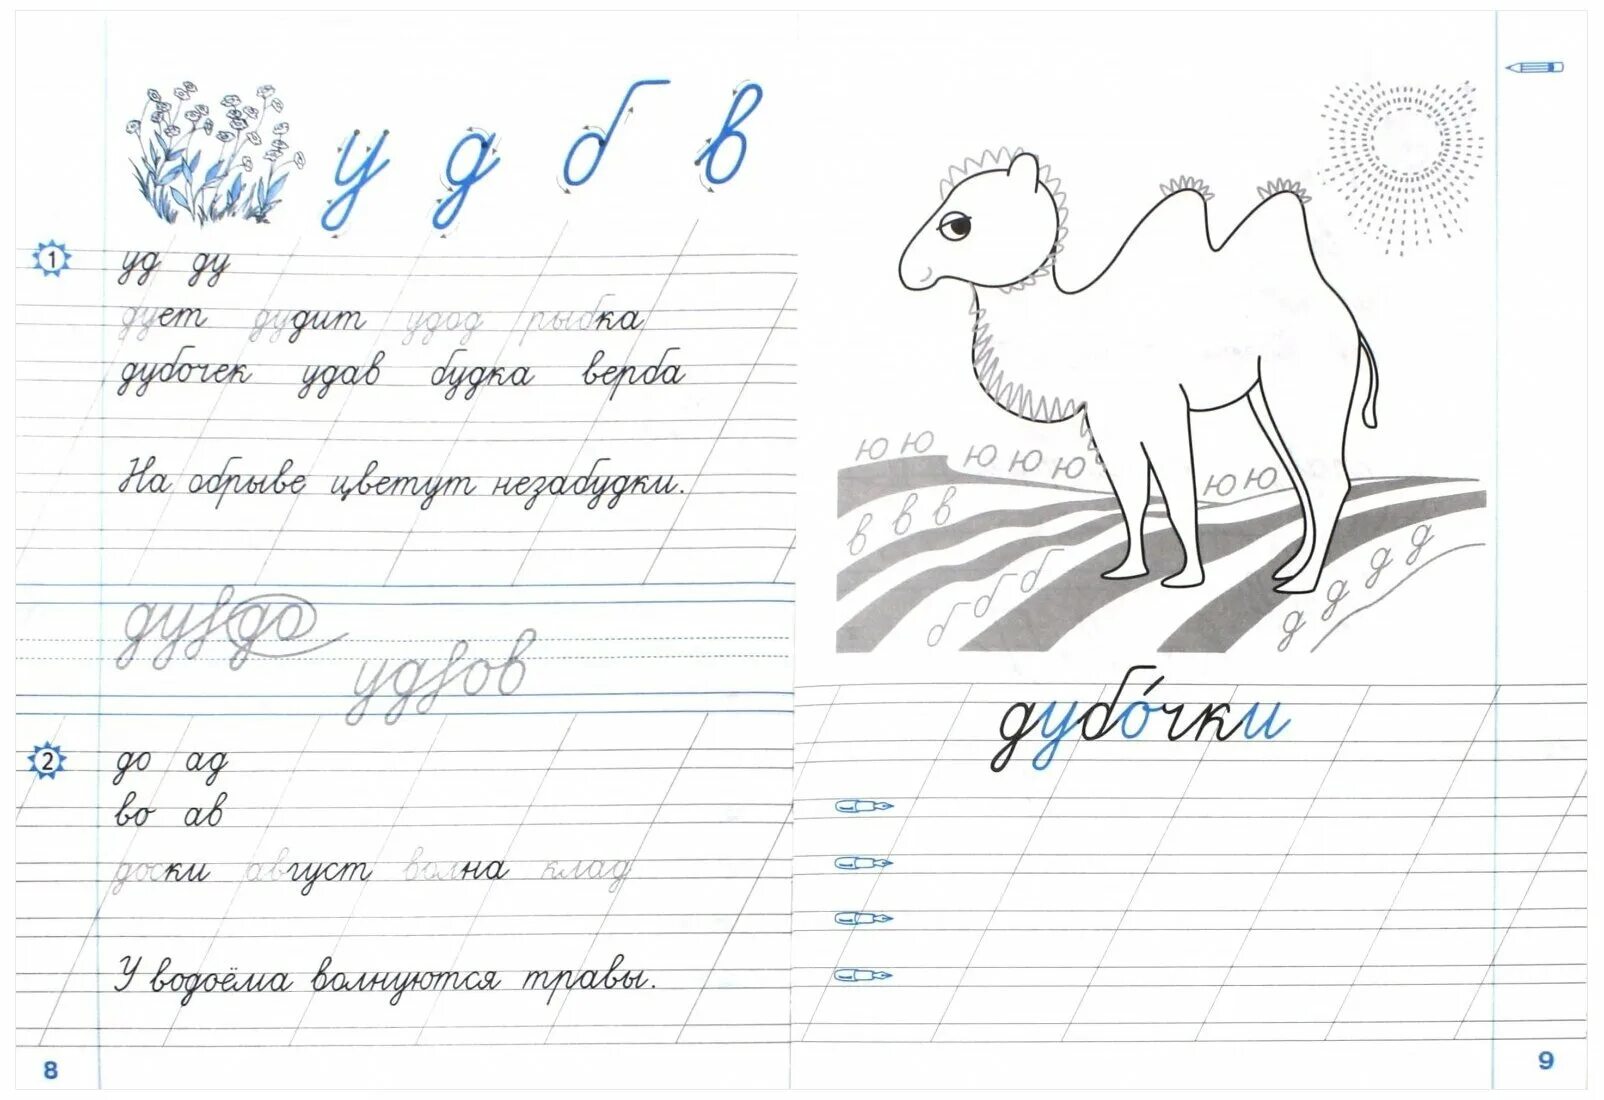 у д б в
1 уд ду
дует дудит удод рыбка
дубочек удав будка верба
На обрыве цветут незабудки.
2 до ад
во ав
доски август волна клад
У водоёма волнуются травы.
8
ю ю ю ю ю ю ю
в в в
б б б
д д д д
дубо́чки
9